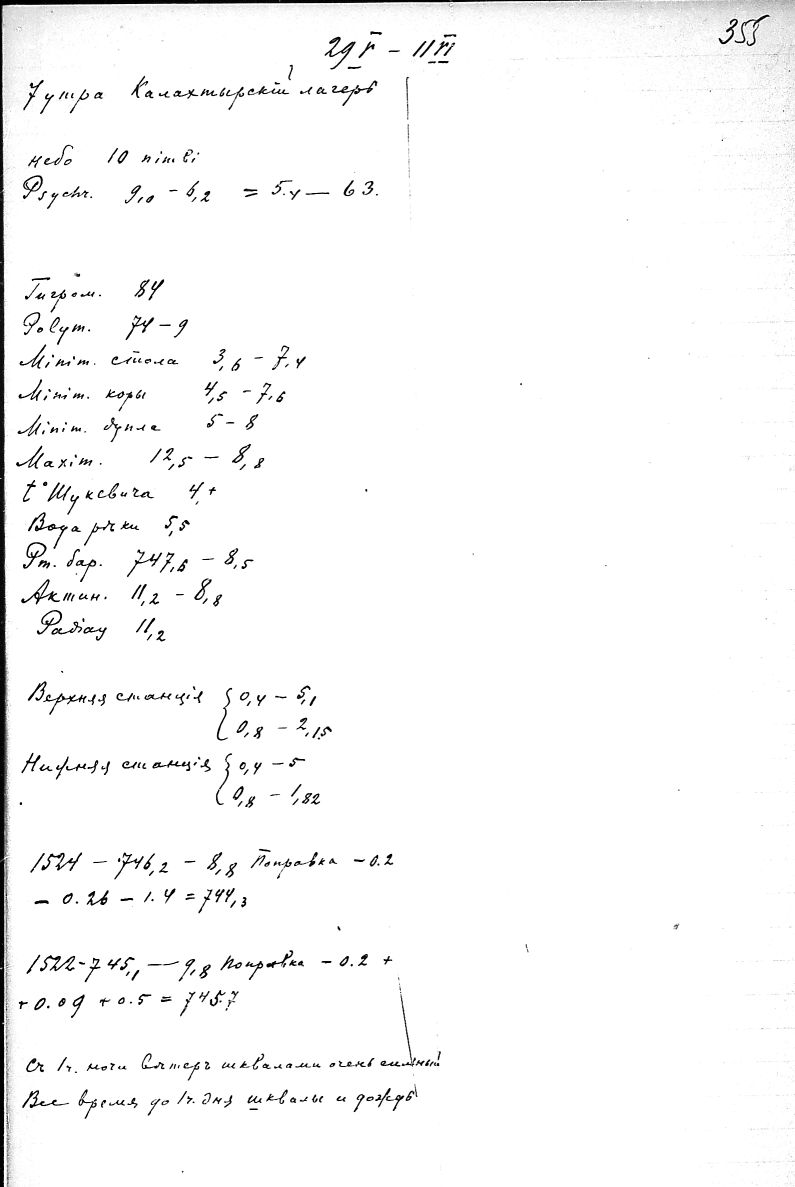 355
29 V – 11 VI
7 утра Калахтырскій лагерь
небо 10 nimbi
Psychr. 9,0 – 6,2 = 5.4 — 63.
Гигром. 84
Polym. 74 – 9
Minim. ствола 3,6 – 7,4
Minim. коры 4,5 – 7,6
Minim. дупла 5 – 8
Maxim. 12,5 – 8,8
t° Шукевича 4,+
Вода рѣки 5,5
Рт. бар. 747,6 – 8,5
Актин. 11,2 – 8,8
Радіац 11,2
Верхняя станція { 0,4 – 5,1
0,8 – 2,15
Нижняя станція { 0,4 – 5
0,8 – 1,82
1524 – 746,2 – 8,8 Поправка – 0.2
– 0.26 – 1.4 = 744,3
1522 – 745,1 — 9,8 Поправка – 0.2 +
+ 0.09 + 0.5 = 745.7
Съ 1ч. ночи вѣтеръ шквалами очень сильный
Все время до 1ч. дня шквалы и дождь